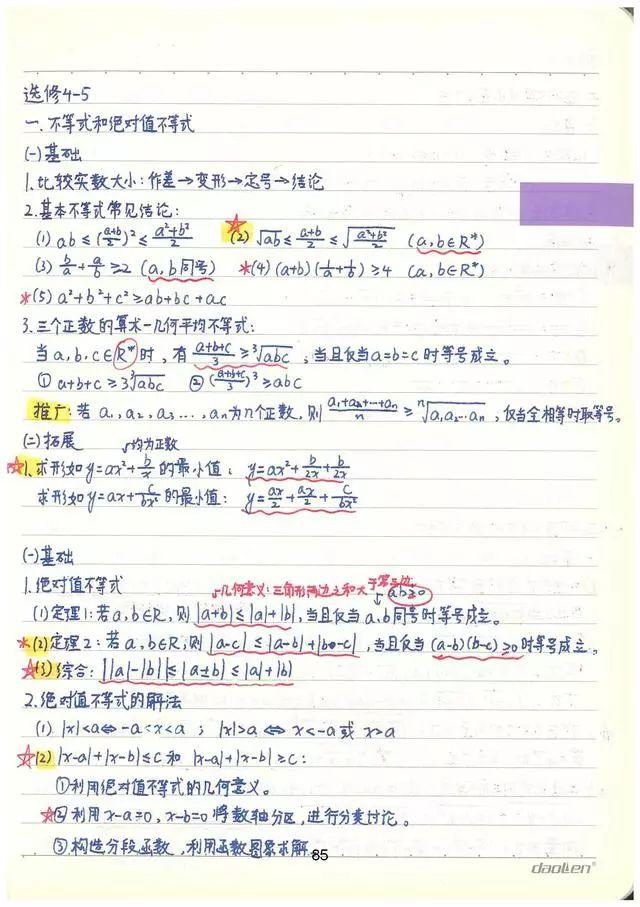 选修4-5
一.不等式和绝对值不等式
(一)基础
1.比较实数大小:作差→变形→定号→结论
2.基本不等式常见结论:
(1) ab ≤ (a+b/2)² ≤ a²+b²/2 (2) √ab ≤ a+b/2 ≤ √(a²+b²/2) (a,b∈R*)
(3) b/a + a/b ≥ 2 (a,b同号) *(4) (a+b)(1/a+1/b) ≥ 4 (a,b∈R*)
*(5) a²+b²+c² ≥ ab+bc+ac
3.三个正数的算术-几何平均不等式:
当a,b,c∈R*时,有 a+b+c/3 ≥ ³√abc ,当且仅当a=b=c时等号成立。
① a+b+c ≥ 3³√abc ② (a+b+c/3)³ ≥ abc
推广:若 a₁,a₂,a₃...,aₙ为n个正数,则 a₁+a₂+…+aₙ/n ≥ ⁿ√a₁a₂…aₙ ,仅当全相等时取等号。
(二)拓展 均为正数
1.求形如y=ax²+b/x的最小值: y=ax²+b/2x+b/2x
求形如y=ax+c/bx²的最小值: y=ax/2+ax/2+c/bx²
(一)基础
1.绝对值不等式 几何意义:三角形两边之和大于等于第三边 ab≥0
(1)定理1:若a,b∈R,则|a+b|≤|a|+|b|,当且仅当a,b同号时等号成立。
*(2)定理2:若a,b∈R,则|a-c|≤|a-b|+|b-c|,当且仅当(a-b)(b-c)≥0时等号成立。
(3)综合:||a|-|b||≤|a±b|≤|a|+|b|
2.绝对值不等式的解法
(1) |x|<a⇔-a<x<a ; |x|>a ⇔ x<-a或 x>a
(2) |x-a|+|x-b|≤c和 |x-a|+|x-b|≥c:
①利用绝对值不等式的几何意义。
②利用x-a=0,x-b=0将数轴分区,进行分类讨论。
③构造分段函数,利用函数图象求解
85
daolien®